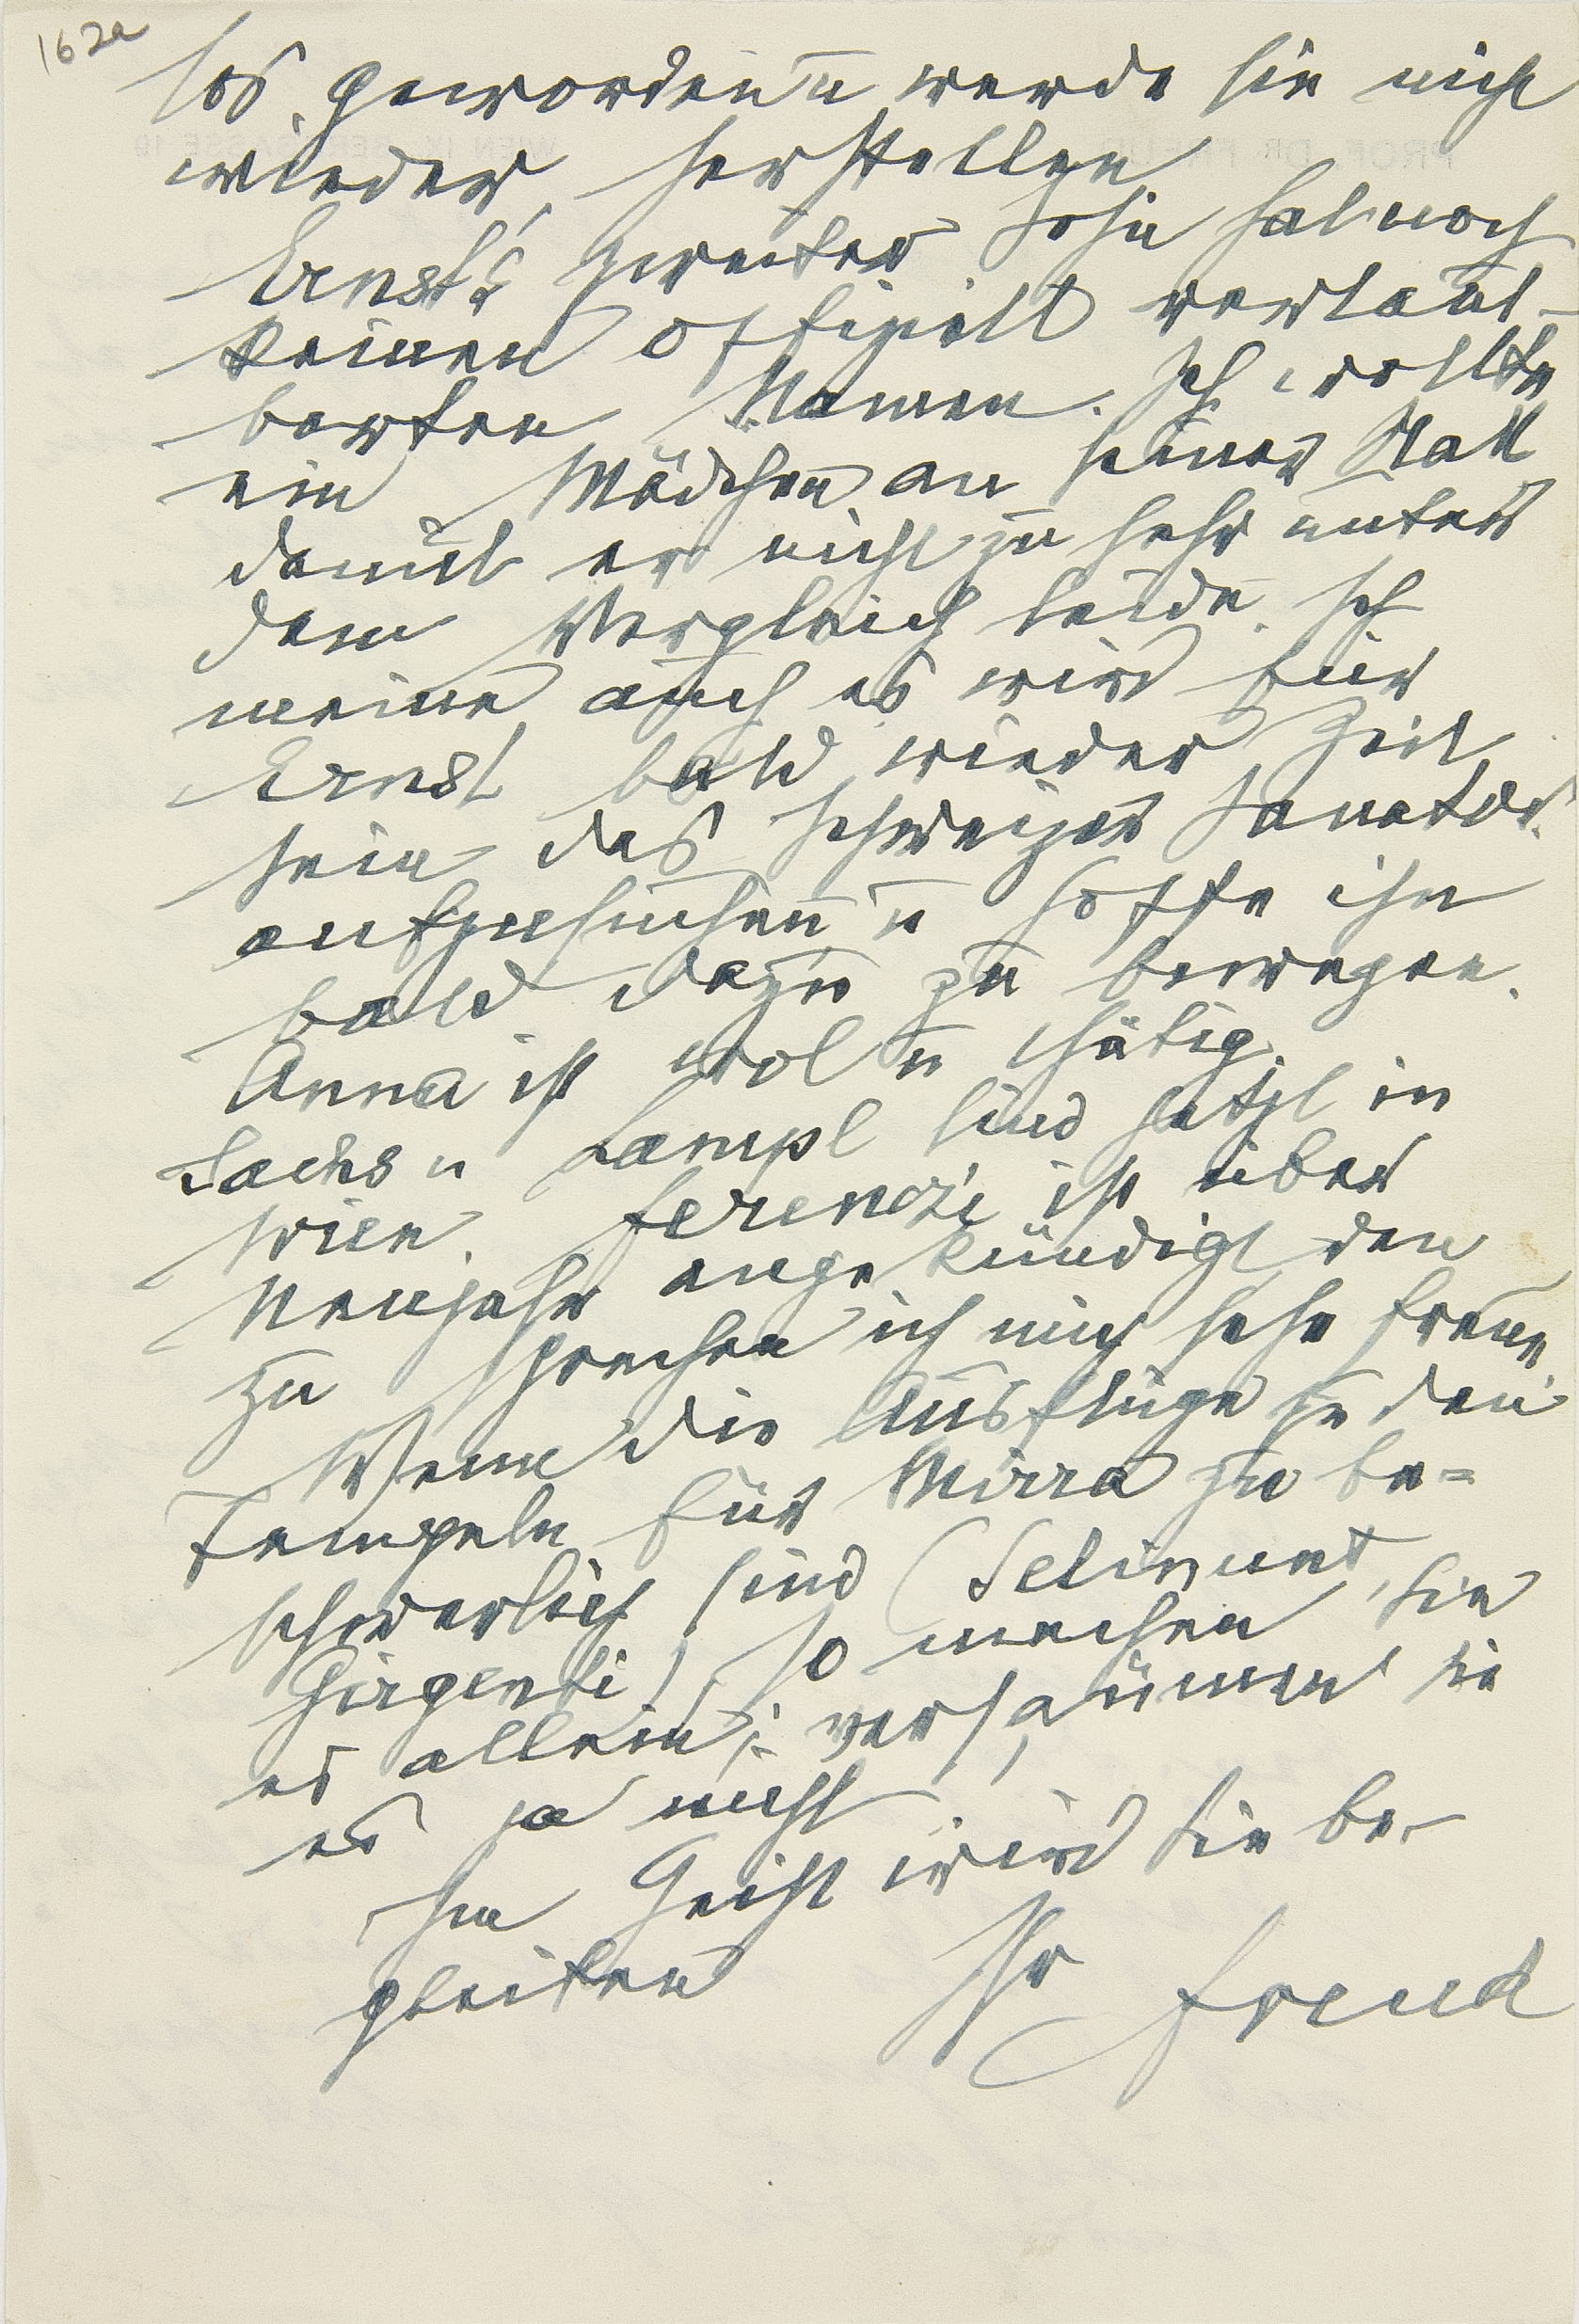 162a
los geworden u werde sie nicht
wieder herstellen.
Ernst's zweiter Sohn hat noch
keinen offiziell verlaut-
barten Namen. Ich wollte
ein Mädchen an seiner Statt
damit er nicht zu sehr unter
dem Vergleich leide. Ich
meine auch es wird für
Ernst bald wieder Zeit
sein das Schweizer Sanator.
aufzusuchen u hoffe ihn
bald dazu zu bewegen.
Anna ist wol u thätig.
Sachs u Lampl sind jetzt in
Wien. Ferenczi ist über
Neujahr angekündigt den
zu sprechen ich mich sehr freue
Wenn die Ausflüge zu den
Tempeln für Mirra zu be=
schwerlich sind (Selinunt,
Girgenti) so machen Sie
es allein; versäumen Sie
es ja nicht.
Im Geist wird Sie be-
gleiten
Ihr Freud